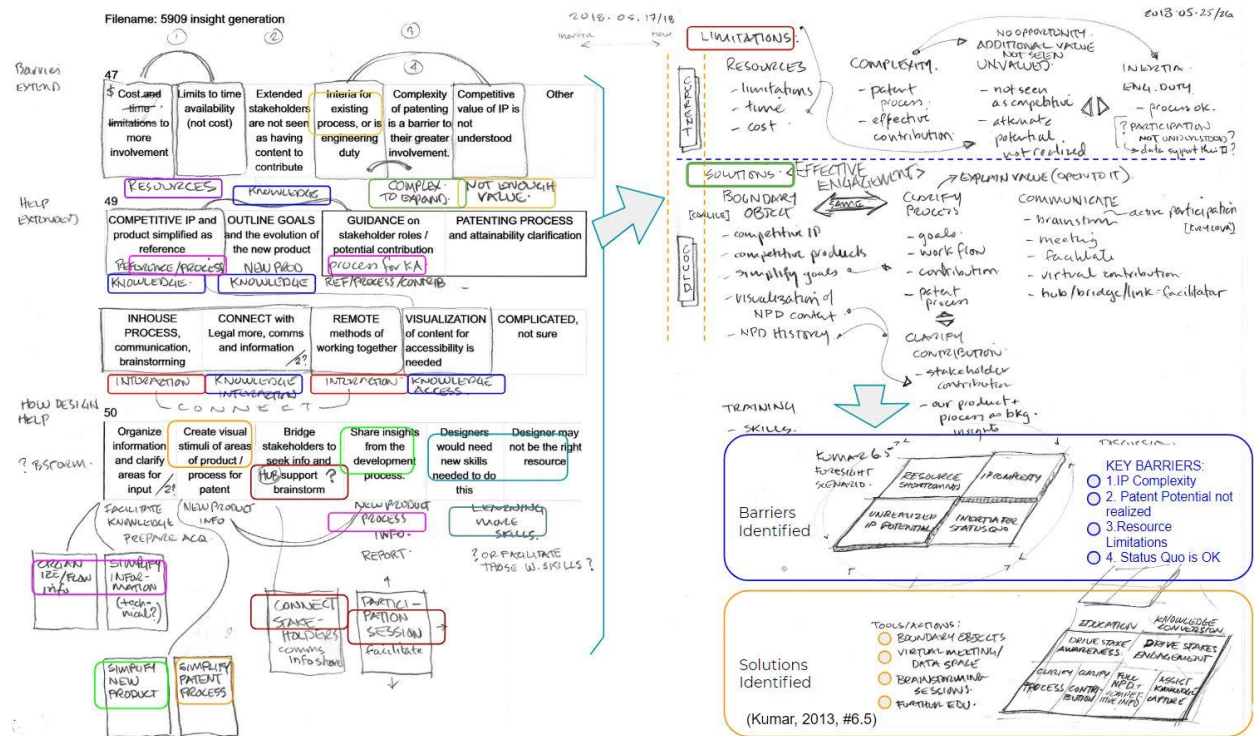 Filename: 5909 insight generation
2018.05.17/18
① ② ③ ④
inertia new
Barrier
EXTEND
47
$ Cost and
time
limitations to
more
involvement
Limits to time
availability
(not cost)
Extended
stakeholders
are not seen
as having
content to
contribute
Interia for
existing
process, or is
engineering
duty
Complexity
of patenting
is a barrier to
their greater
involvement.
Competitive
value of IP is
not
understood
Other
RESOURCES
KNOWLEDGE
COMPLEX
TO EXPAND.
NOT ENOUGH
VALUE.
HELP
EXTENDED
49
COMPETITIVE IP and
product simplified as
reference
OUTLINE GOALS
and the evolution of
the new product
GUIDANCE on
stakeholder roles /
potential contribution
PATENTING PROCESS
and attainability clarification
REFERENCE/PROCESS
KNOWLEDGE.
NEW PROD
KNOWLEDGE
process for KA
REF/PROCESS/CONTRIB
INHOUSE
PROCESS,
communication,
brainstorming
CONNECT with
Legal more, comms
and information
/2?
REMOTE
methods of
working together
VISUALIZATION
of content for
accessibility is
needed
COMPLICATED,
not sure
INTERACTION
KNOWLEDGE
INTERACTION
INTERACTION.
KNOWLEDGE
ACCESS.
CONNECT
HOW DESIGN
HELP
? BSTORM.
50
Organize
information
and clarify
areas for
input /2?
Create visual
stimuli of areas
of product /
process for
patent
Bridge
stakeholders to
seek info and
HUB support ?
brainstorm
Share insights
from the
development
process.
Designers
would need
new skills
needed to do
this
Designer may
not be the right
resource
FACILITATE
KNOWLEDGE
PREPARE ACQ.
NEW PRODUCT
INFO
NEW PRODUCT
PROCESS
INFO.
REPORT.
LEARNING
MORE
SKILLS.
? OR FACILITATE
THOSE W. SKILLS ?
ORGAN
IZE/FLOW
info
SIMPLIFY
INFOR-
MATION
(tech-
nical?)
CONNECT
STAKE-
HOLDERS
comms
info share
PARTICI-
PATION
SESSION
facilitate
SIMPLIFY
NEW
PRODUCT
SIMPLIFY
PATENT
PROCESS
2018.05.25/26a
LIMITATIONS:
CURRENT
RESOURCES
- limitations
- time
- cost
COMPLEXITY.
- patent
process
- effective
contribution
NO OPPORTUNITY.
ADDITIONAL VALUE
NOT SEEN
UNVALUED.
- not seen
as competitive
- alternate
potential
not realized
INERTIA
ENG. DUTY
- process ok.
? PARTICIPATION
NOT UNDERSTOOD?
SOLUTIONS. <EFFECTIVE
ENGAGEMENT>
EXPLAIN VALUE (OPEN TO IT).
COULD
BOUNDARY
OBJECT
[CARLILE]
- competitive IP
- competitive products
- simplify goals
- visualization of
NPD content
- NPD HISTORY
SAME
CLARIFY
PROCESS
- goals
- work flow
- contribution
- patent
process
CLARIFY
CONTRIBUTION
- stakeholder
contribution
- our product +
process as bkg.
insights
COMMUNICATE
- brainstorm
- active participation
- meeting
- facilitate
- virtual contribution
- hub/bridge/link=facilitator
TRAINING
- SKILLS.
KUMAR 6.5
FORESIGHT
SCENARIO.
Barriers
Identified
RESOURCE
SHORTCOMINGS
IP COMPLEXITY
UNREALIZED
IP POTENTIAL
INERTIA FOR
STATUS QUO
KEY BARRIERS:
1.IP Complexity
2. Patent Potential not
realized
3.Resource
Limitations
4. Status Quo is OK
Solutions
Identified
(Kumar, 2013, #6.5)
TOOLS/ACTIONS:
BOUNDARY OBJECTS
VIRTUAL MEETING/
DATA SPACE
BRAINSTORMING
SESSIONS.
FURTHUR EDU.
EDUCATION
KNOWLEDGE
CONVERSION
DRIVE STAKE
AWARENESS
DRIVE STAKES
ENGAGEMENT
CLARIFY
PROCESS
CLARIFY
CONTRI-
BUTION
FULL
NPD +
COMPET-
ITIVE INFO
ASSIST
KNOWLEDGE
CAPTURE